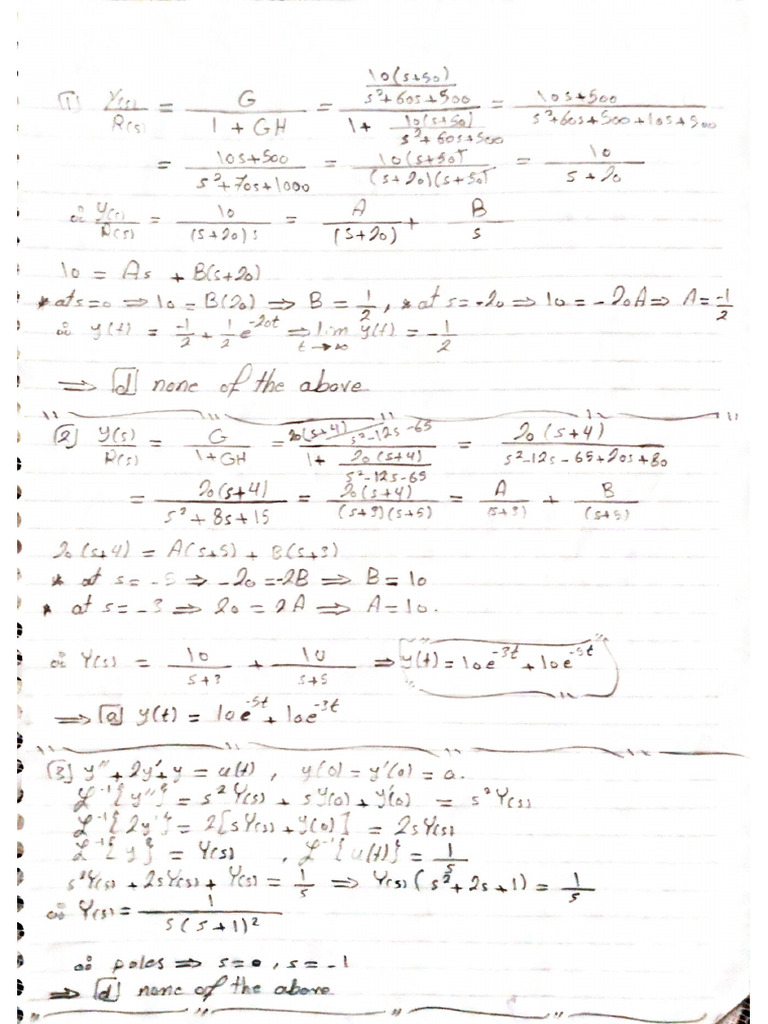 [1] Y(s)/R(s) = G/(1 + GH) = (10(s+50)/(s²+60s+500))/(1 + 10(s+50)/(s²+60s+500)) = (10s+500)/(s²+60s+500+10s+500)
= (10s+500)/(s²+70s+1000) = 10(s+50)/((s+20)(s+50)) = 10/(s+20)
∴ Y(s)/R(s) = 10/((s+20)s) = A/(s+20) + B/s
10 = As + B(s+20)
* at s=0 ⇒ 10 = B(20) ⇒ B = 1/2, * at s=-20 ⇒ 10 = -20A ⇒ A = -1/2
∴ y(t) = -1/2 + 1/2 e^-20t ⇒ lim t→∞ y(t) = -1/2
⇒ [d] none of the above
[2] Y(s)/R(s) = G/(1+GH) = (20(s+4)/(s²-12s-65))/(1 + 20(s+4)/(s²-12s-65)) = 20(s+4)/(s²-12s-65+20s+80)
= 20(s+4)/(s²+8s+15) = 20(s+4)/((s+3)(s+5)) = A/(s+3) + B/(s+5)
20(s+4) = A(s+5) + B(s+3)
* at s=-5 ⇒ -20 = -2B ⇒ B = 10
* at s=-3 ⇒ 20 = 2A ⇒ A = 10.
∴ Y(s) = 10/(s+3) + 10/(s+5) ⇒ y(t) = 10e^-3t + 10e^-5t
⇒ [a] y(t) = 10e^-5t + 10e^-3t
[3] y'' + 2y' + y = u(t), y(0) = y'(0) = 0.
ℒ⁻¹{y''} = s²Y(s) + sY(0) + Y'(0) = s²Y(s)
ℒ⁻¹{2y'} = 2[sY(s) + Y(0)] = 2sY(s)
ℒ⁻¹{y} = Y(s), ℒ⁻¹{u(t)} = 1/s
s²Y(s) + 2sY(s) + Y(s) = 1/s ⇒ Y(s)(s²+2s+1) = 1/s
∴ Y(s) = 1/(s(s+1)²)
∴ poles ⇒ s=0, s=-1
⇒ [d] none of the above